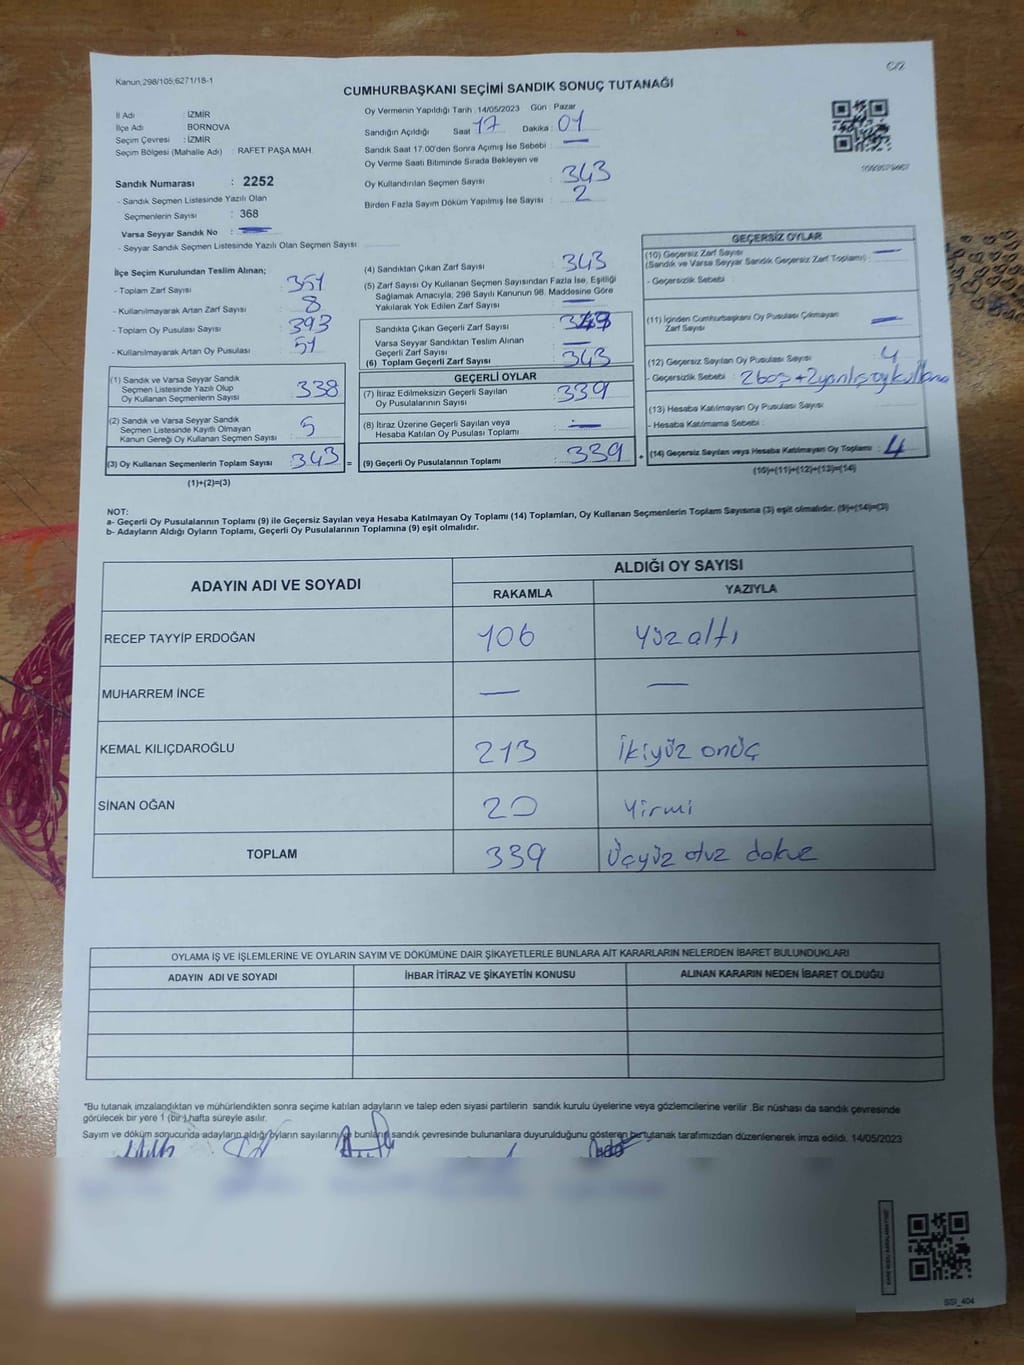 Kanun;298/105;6271/18-1
C/2
CUMHURBAŞKANI SEÇİMİ SANDIK SONUÇ TUTANAĞI
İl Adı : İZMİR
İlçe Adı : BORNOVA
Seçim Çevresi : İZMİR
Seçim Bölgesi (Mahalle Adı) : RAFET PAŞA MAH
Sandık Numarası : 2252
- Sandık Seçmen Listesinde Yazılı Olan
Seçmenlerin Sayısı : 368
Varsa Seyyar Sandık No : —
- Seyyar Sandık Seçmen Listesinde Yazılı Olan Seçmen Sayısı
Oy Vermenin Yapıldığı Tarih : 14/05/2023 Gün : Pazar
Sandığın Açıldığı Saat : 17 Dakika : 01
Sandık Saat 17.00'den Sonra Açımış İse Sebebi : —
Oy Verme Saati Bitiminde Sırada Bekleyen ve
Oy Kullandırılan Seçmen Sayısı : 343
Birden Fazla Sayım Döküm Yapılmış İse Sayısı : 2
İlçe Seçim Kurulundan Teslim Alınan;
- Toplam Zarf Sayısı : 351
- Kullanılmayarak Artan Zarf Sayısı : 8
- Toplam Oy Pusulası Sayısı : 393
- Kullanılmayarak Artan Oy Pusulası : 51
(1) Sandık ve Varsa Seyyar Sandık
Seçmen Listesinde Yazılı Olup
Oy Kullanan Seçmenlerin Sayısı : 338
(2) Sandık ve Varsa Seyyar Sandık
Seçmen Listesinde Kayıtlı Olmayan
Kanun Gereği Oy Kullanan Seçmen Sayısı : 5
(3) Oy Kullanan Seçmenlerin Toplam Sayısı : 343 =
(1)+(2)=(3)
(4) Sandıktan Çıkan Zarf Sayısı : 343
(5) Zarf Sayısı Oy Kullanan Seçmen Sayısından Fazla İse, Eşitliği
Sağlamak Amacıyla; 298 Sayılı Kanunun 98. Maddesine Göre
Yakılarak Yok Edilen Zarf Sayısı : —
Sandıkta Çıkan Geçerli Zarf Sayısı :
Varsa Seyyar Sandıktan Teslim Alınan
Geçerli Zarf Sayısı : —
(6) Toplam Geçerli Zarf Sayısı : 343
GEÇERLİ OYLAR
(7) İtiraz Edilmeksizin Geçerli Sayılan
Oy Pusulalarının Sayısı : 339
(8) İtiraz Üzerine Geçerli Sayılan veya
Hesaba Katılan Oy Pusulası Toplamı : —
(9) Geçerli Oy Pusulalarının Toplamı : 339 +
GEÇERSİZ OYLAR
(10) Geçersiz Zarf Sayısı
(Sandık ve Varsa Seyyar Sandık Geçersiz Zarf Toplamı) : —
- Geçersizlik Sebebi :
(11) İçinden Cumhurbaşkanı Oy Pusulası Çıkmayan
Zarf Sayısı : —
(12) Geçersiz Sayılan Oy Pusulası Sayısı : 4
- Geçersizlik Sebebi : 2 boş + 2 yanlış oy kullanma
(13) Hesaba Katılmayan Oy Pusulası Sayısı
- Hesaba Katılmama Sebebi :
(14) Geçersiz Sayılan veya Hesaba Katılmayan Oy Toplamı : 4
(10)+(11)+(12)+(13)=(14)
NOT:
a- Geçerli Oy Pusulalarının Toplamı (9) ile Geçersiz Sayılan veya Hesaba Katılmayan Oy Toplamı (14) Toplamları, Oy Kullanan Seçmenlerin Toplam Sayısına (3) eşit olmalıdır. (9)+(14)=(3)
b- Adayların Aldığı Oyların Toplamı, Geçerli Oy Pusulalarının Toplamına (9) eşit olmalıdır.
ADAYIN ADI VE SOYADI
ALDIĞI OY SAYISI
RAKAMLA YAZIYLA
RECEP TAYYİP ERDOĞAN 106 Yüz altı
MUHARREM İNCE — —
KEMAL KILIÇDAROĞLU 213 İkiyüz onüç
SİNAN OĞAN 20 Yirmi
TOPLAM 339 Üçyüz otuz dokuz
OYLAMA İŞ VE İŞLEMLERİNE VE OYLARIN SAYIM VE DÖKÜMÜNE DAİR ŞİKAYETLERLE BUNLARA AİT KARARLARIN NELERDEN İBARET BULUNDUKLARI
ADAYIN ADI VE SOYADI İHBAR İTİRAZ VE ŞİKAYETİN KONUSU ALINAN KARARIN NEDEN İBARET OLDUĞU
"Bu tutanak imzalandıktan ve mühürlendikten sonra seçime katılan adayların ve talep eden siyasi partilerin sandık kurulu üyelerine veya gözlemcilerine verilir .Bir nüshası da sandık çevresinde
görülecek bir yere 1 (bir) hafta süreyle asılır.
Sayım ve döküm sonucunda adayların aldığı oyların sayılarını ve bunların sandık çevresinde bulunanlara duyurulduğunu gösteren bu tutanak tarafımızdan düzenlenerek imza edildi. 14/05/2023
SSI_404